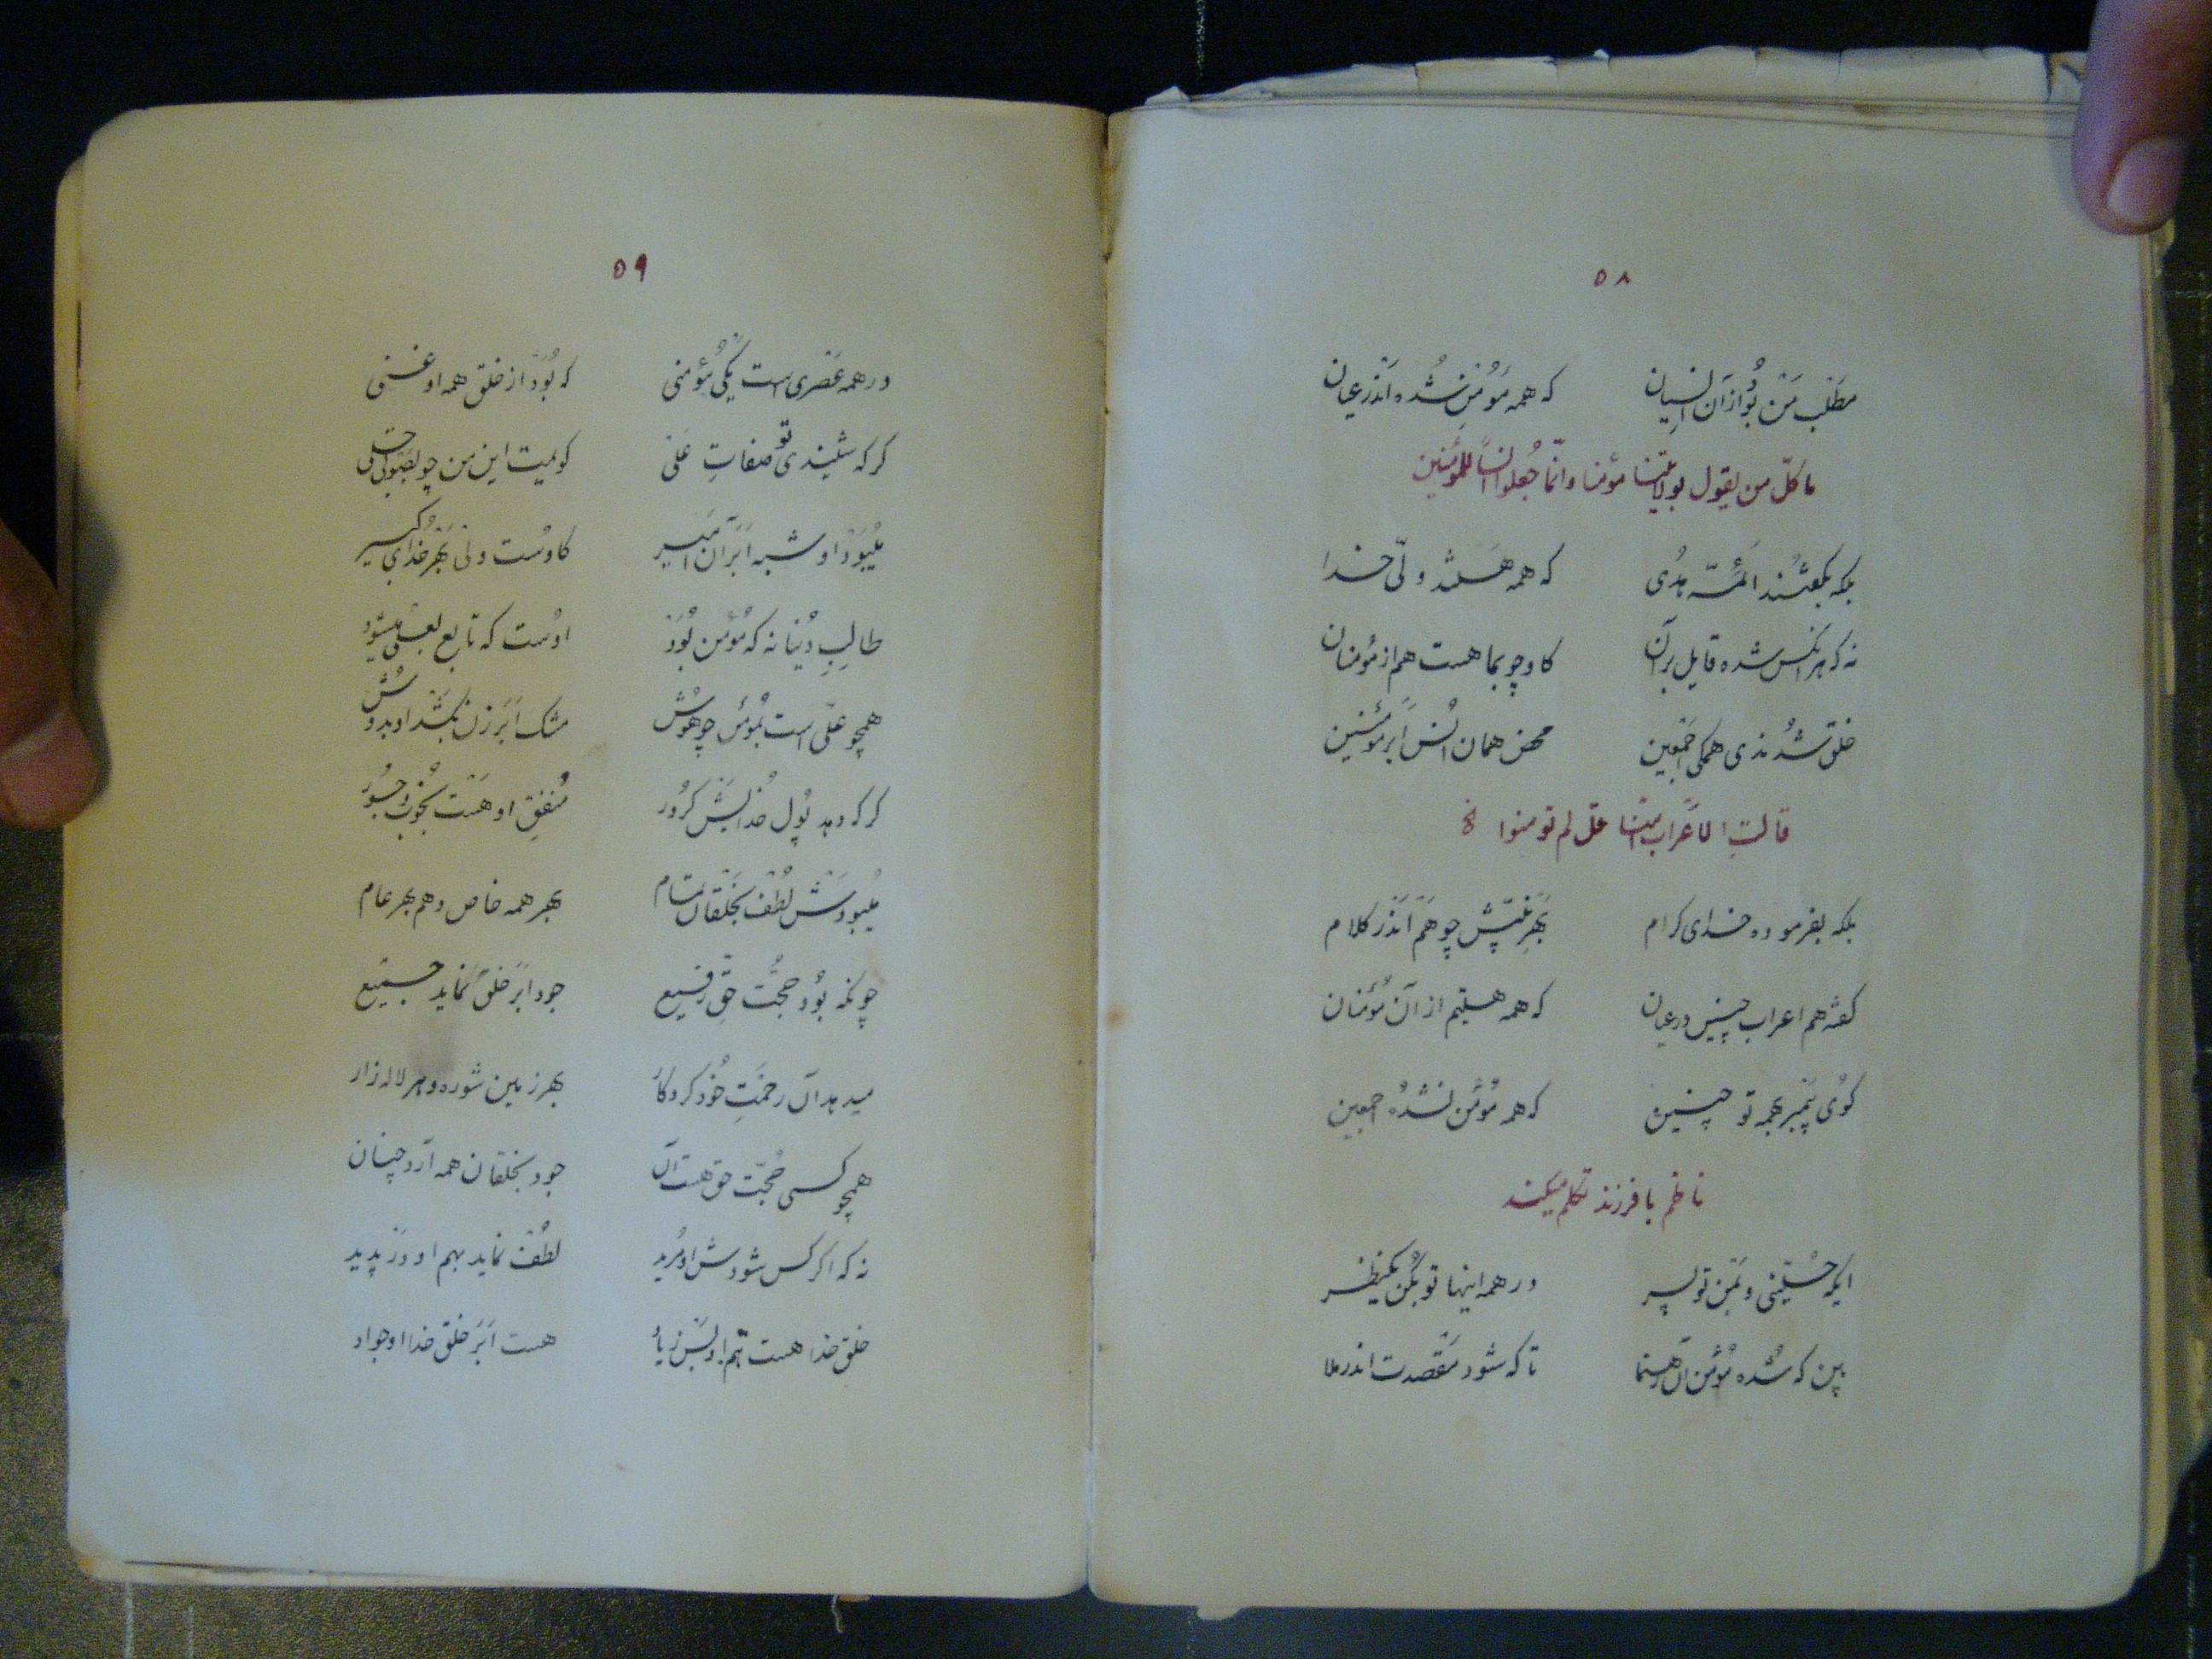 ۵۸
مطلب من بود از آن انسیان که همه مؤمن شده اندر عیان
ما کل من یقول بولایتنا مؤمنا وانما جعلوا انسا للمؤمنین
بلکه بگفتند ائمه هدی که همه هستند ولی خدا
نه که هر آنکس شده قایل بر آن کاو چو بما هست هم از مؤمنان
خلق شدندی همگی اجمعین محض همان انس ابر مؤمنین
قالت الاعراب آمنا قل لم تومنوا
بلکه بفرموده خدای کرام بهر نبیش چو هم اندر کلام
گفته هم اعراب چنین در عیان که همه هستیم از آن مؤمنان
گوی پیمبر بهمه تو چنین که همه مؤمن نشده اجمعین
ناظم با فرزند تکلم میکند
ایکه حسینی و بمن تو پسر در همه اینها تو بکن یکنظر
بین که شده مؤمن آن رهنما تا که شود مقصدت اندر ملا
۵۹
در همه عصری است یکی مؤمنی که بود از خلق همه او غنی
گر که شنیدی تو صفات علی گویمت این من چو بصوت جلی
میبود او شبه ابر آن امیر کاوست ولی بهر خدای کبیر
طالب دنیا نه که مؤمن بود اوست که تابع بعلی میشود
همچو علی است بمؤمن چو هوش مشک ابر زن بکشد او بدوش
گر که دهد پول خدایش کرور منفق او هست بخوب و جسور
میبودش لطف بخلقان تمام بهر همه خاص و هم بهر عام
چونکه بود حجت حق رفیع جود ابر خلق نماید جمیع
میدهد آن رحمت خود کردگار بهر زمین شوره و هر لاله زار
همچو کسی حجت حق هست آن جود بخلقان همه آرد چنان
نه که اگر کس شودش او مرید لطف نماید بهم او در پدید
خلق خدا هست هست ابر خلق خدا او جواد